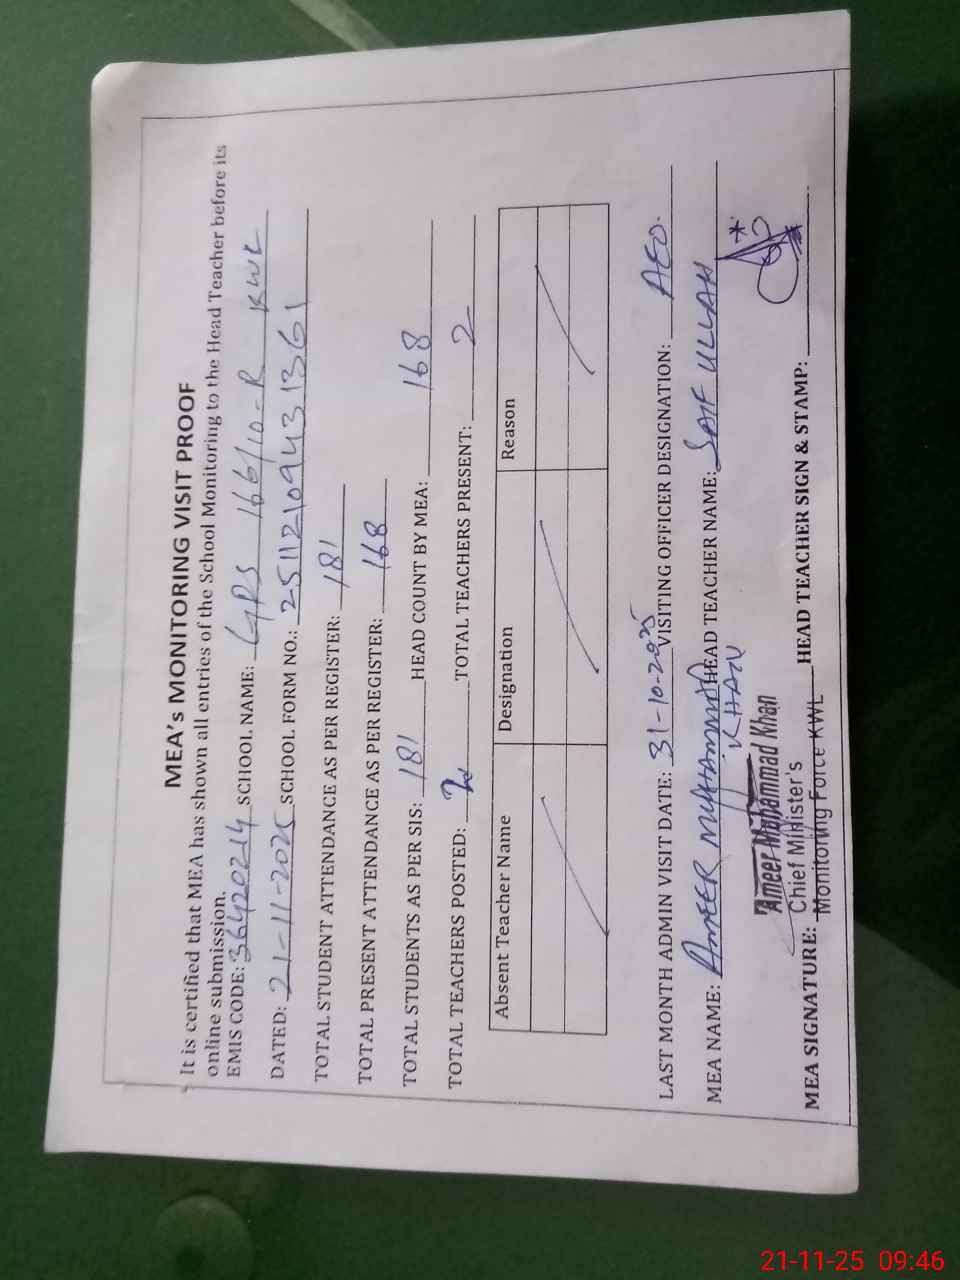 MEA's MONITORING VISIT PROOF
It is certified that MEA has shown all entries of the School Monitoring to the Head Teacher before its
online submission.
EMIS CODE: 36420214 SCHOOL NAME: GPS 166/10-R KWL
DATED: 21-11-2025 SCHOOL FORM NO.: 25112109431361
TOTAL STUDENT ATTENDANCE AS PER REGISTER: 181
TOTAL PRESENT ATTENDANCE AS PER REGISTER: 168
TOTAL STUDENTS AS PER SIS: 181 HEAD COUNT BY MEA: 168
TOTAL TEACHERS POSTED: 2 TOTAL TEACHERS PRESENT: 2
Absent Teacher Name Designation Reason
LAST MONTH ADMIN VISIT DATE: 31-10-2025 VISITING OFFICER DESIGNATION: AEO.
MEA NAME: AMEER MUHAMMAD KHAN HEAD TEACHER NAME: SAIF ULLAH
Ameer Muhammad Khan
Chief Minister's
Monitoring Force KWL
MEA SIGNATURE: HEAD TEACHER SIGN & STAMP:
21-11-25 09:46